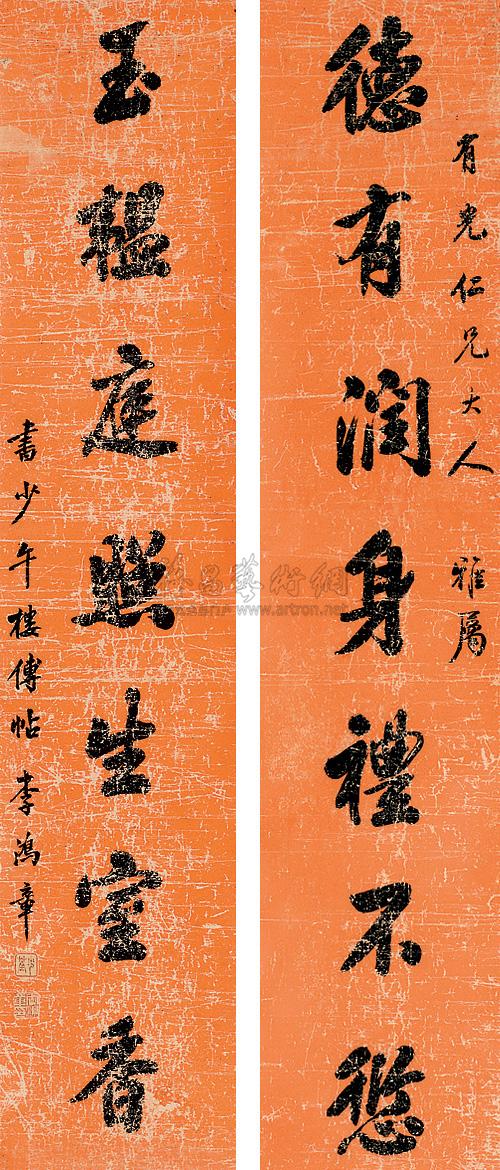 有光仁兄大人 雅屬
德有潤身禮不愆
玉榲庭照生室香
書少午樓傅帖 李鴻章
雅昌藝術網
www.artron.net